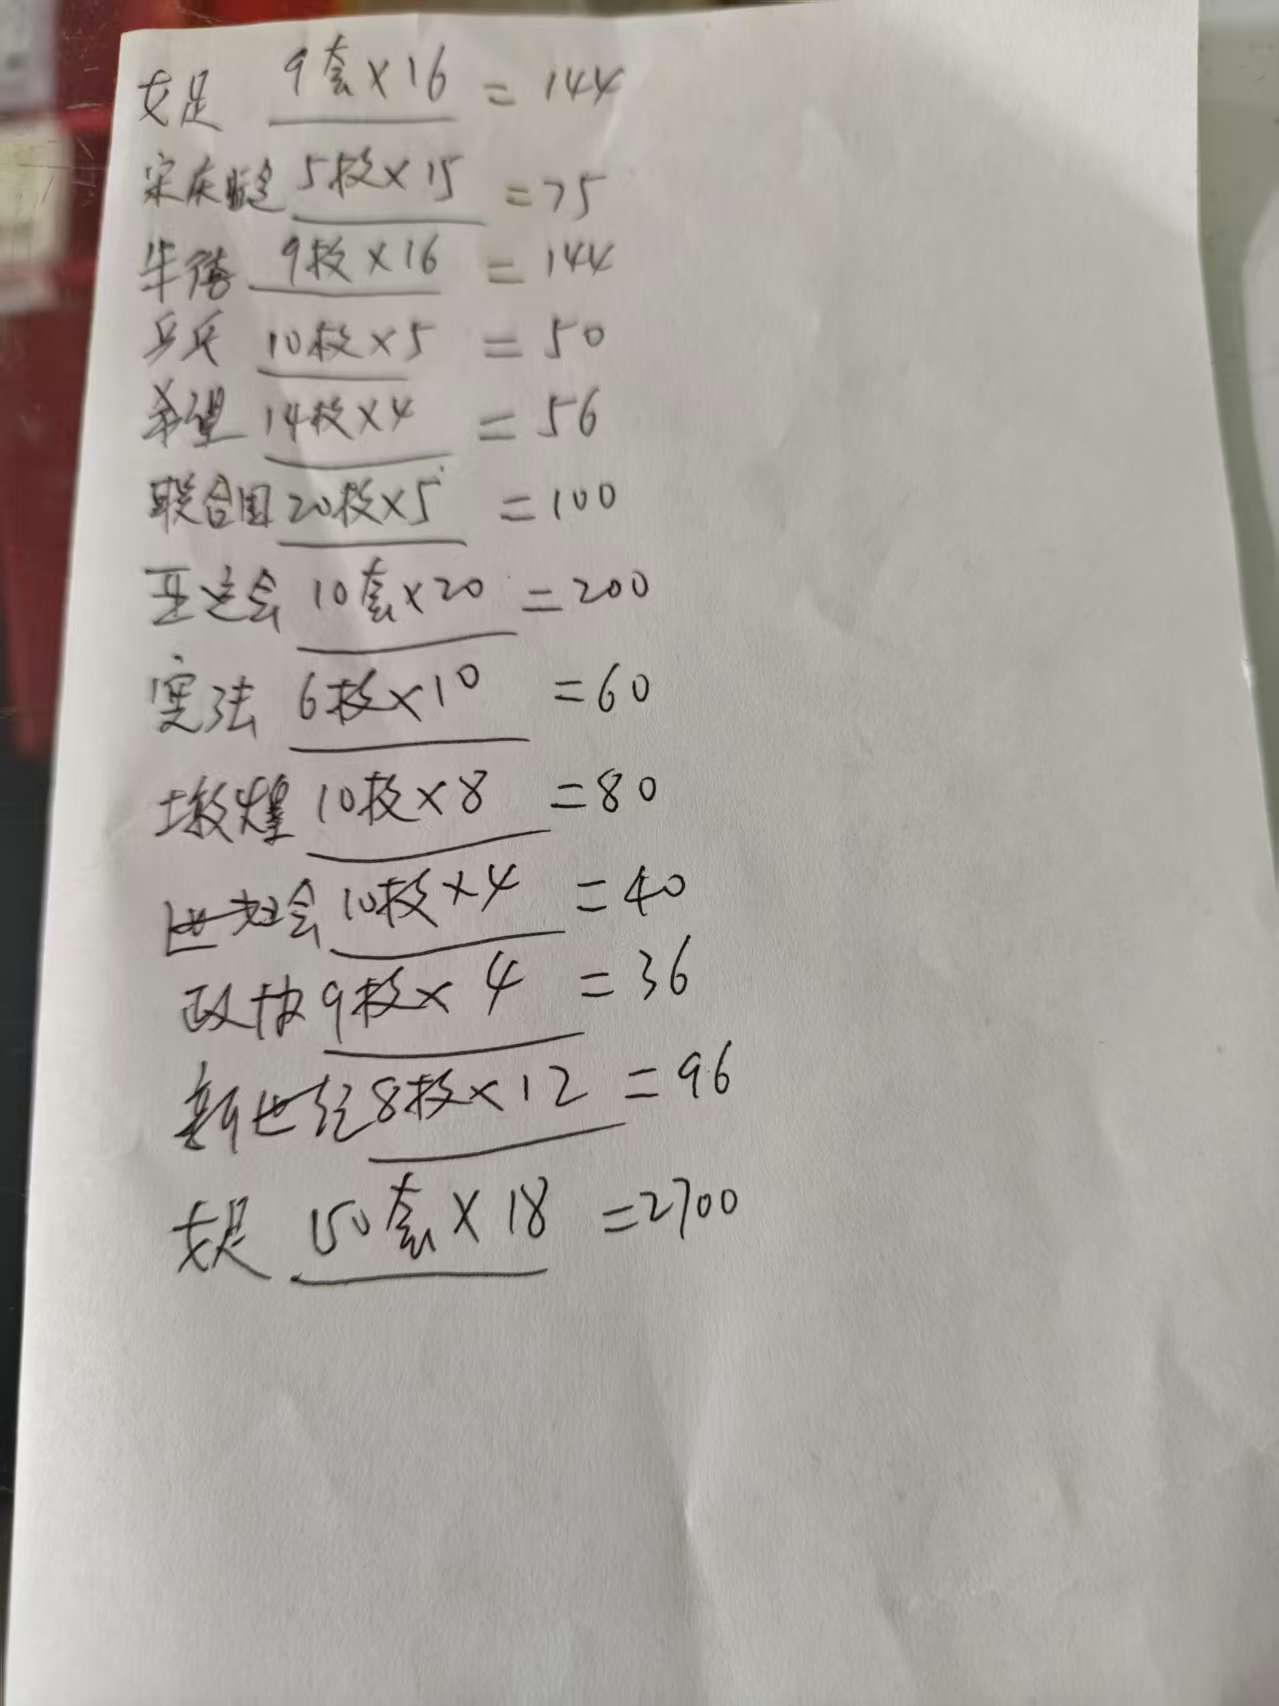 女足 9套×16 = 144
宋庆龄 5枚×15 =75
牛猪 9枚×16 = 144
乒乓 10枚×5 = 50
希望 14枚×4 = 56
联合国 20枚×5 =100
亚运会 10套×20 =200
宪法 6枚×10 =60
墩煌 10枚×8 =80
世妇会 10枚×4 =40
政协 9枚×4 =36
新世纪 8枚×12 =96
女足 150套×18 =2700